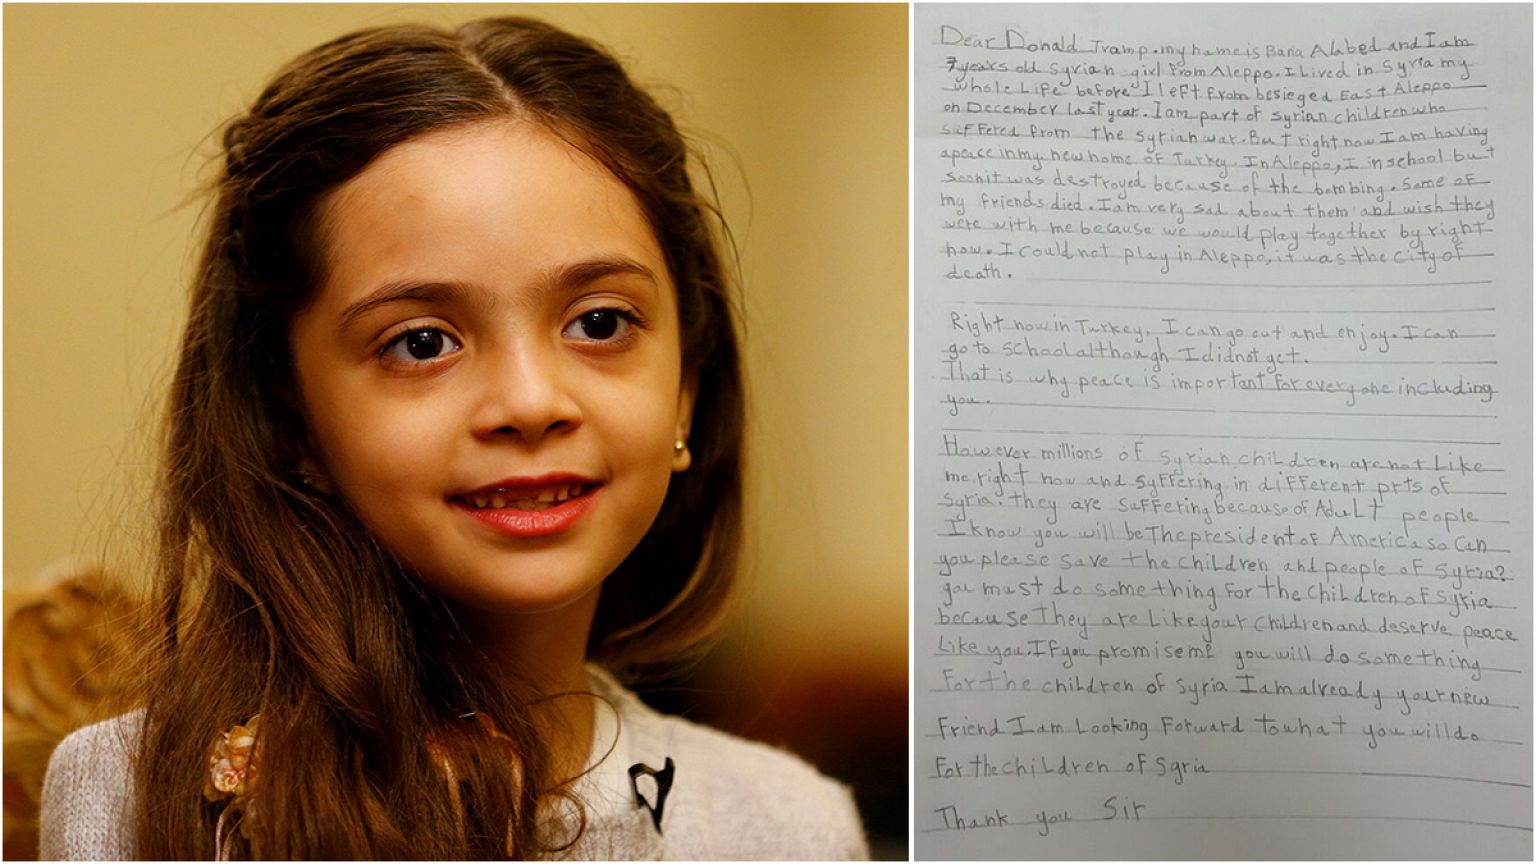 Dear Donald Tramp. my name is Bana Alabed and I am
7 years old Syrian girl From Aleppo. I Lived in Syria my
whole Life before I left from besieged East Aleppo
on December last year. I am part of Syrian children who
suffered from the Syrian war. But right now I am having
a peace in my new home of Turkey. In Aleppo, I in school but
soon it was destroyed because of the bombing. Some of
my friends died. I am very sad about them and wish they
were with me because we would play together by right
now. I could not play in Aleppo, it was the city of
death.
Right now in Turkey, I can go out and enjoy. I can
go to school although I didnot yet.
That is why peace is important for everyone including
you.
However millions of Syrian children are not Like
me right now and syffering in different prts of
Syria. they are suffering because of Adult people
I know you will be The president of America so Can
you please save the children and people of Syria?
you must do something For the children of Syria
because They are Like your children and deserve peace
Like you. If you promise me you will do something
For the children of Syria I am already your new
Friend I am Looking Forward to what you will do
For the chiLdren of Syria
Thank you Sir